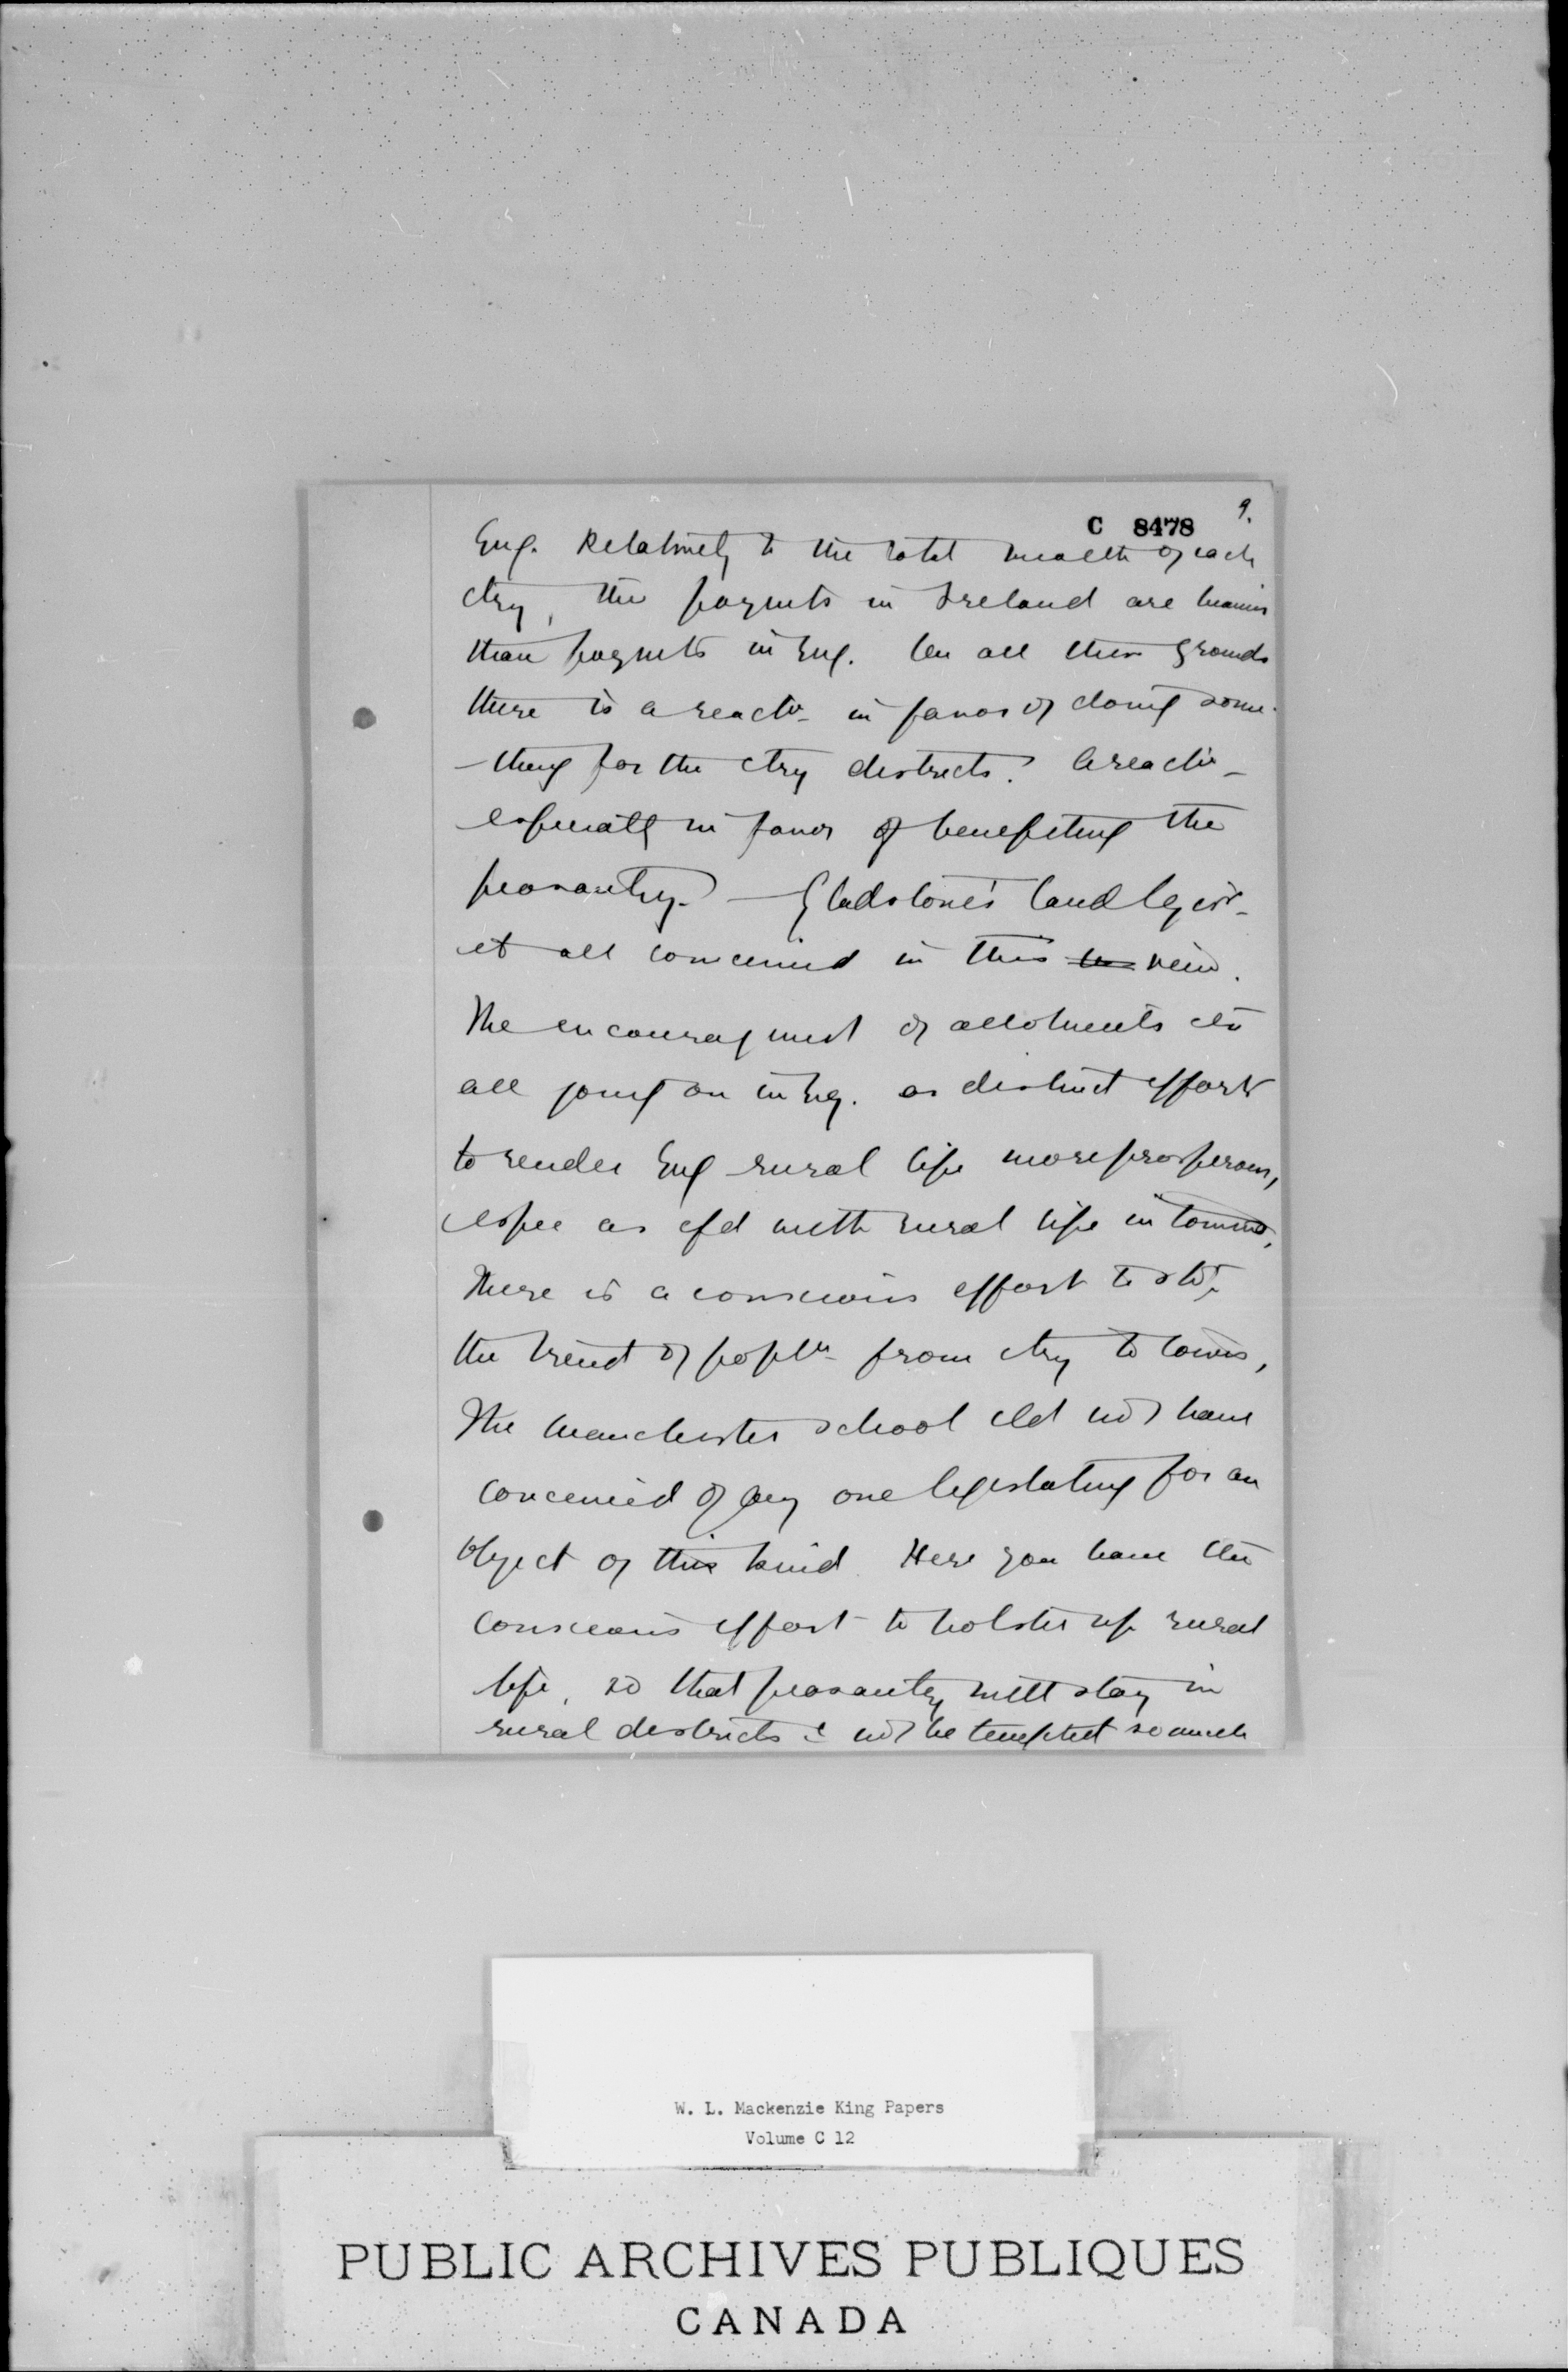 9.
C 8478
Eng. Relatively to the total wealth of each
ctry, the paymts in Ireland are heavier
than paymts in Eng. On all these grounds
there is a reactn in favor of doing some-
-thing for the ctry districts. A reactn
especially in favor of benefiting the
peasantry. — Gladstone's land legisn
et all conceived in this vein.
The encouragement of allotments etc
all going on in Eng. as distinct efforts
to render Eng rural life more prosperous,
espec as cfd with rural life in towns,
There is a conscious effort to stop
the trend of popln from ctry to towns,
The Manchester School cld not have
conceived of any one legislating for an
object of this kind. Here you have the
conscious effort to bolster up rural
life, so that peasantry will stay in
rural districts & not be tempted so much
W. L. Mackenzie King Papers
Volume C 12
PUBLIC ARCHIVES PUBLIQUES
CANADA